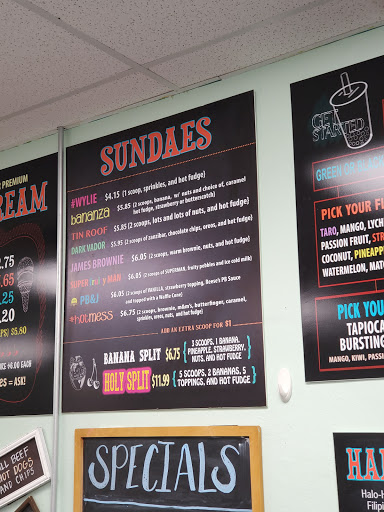 PREMIUM
REAM
2.75
.65
.25
.20
$5.80
= ASK!
ALL BEEF
HOT DOGS
AND CHIPS
SUNDAES
#WYLIE $4.15 (1 scoop, sprinkles, and hot fudge)
bananza $5.85 (2 scoops, banana, w/ nuts and choice of, caramel
hot fudge, strawberry or butterscotch)
TIN ROOF $5.85 (2 scoops, lots and lots of nuts, and hot fudge)
DARK VADOR $5.95 (2 scoops of zanzibar, chocolate chips, oreos, and hot fudge)
JAMES BROWNIE $6.05 (2 scoops, warm brownie, nuts, and hot fudge)
SUPER MAN $6.05 (2 scoops of SUPERMAN, fruity pebbles and ice cold milk)
PB&J $6.05 (2 scoops of VANILLA, strawberry topping, Reese's PB Sauce
and topped with a Waffle Cone)
#hotmess $6.75 (2 scoops, brownie, m&m's, butterfinger, caramel,
sprinkles, oreos, nuts, and hot fudge)
ADD AN EXTRA SCOOP FOR $1
BANANA SPLIT $6.75 { 3 SCOOPS, 1 BANANA,
PINEAPPLE, STRAWBERRY,
NUTS, AND HOT FUDGE }
HOLY SPLIT $11.99 { 5 SCOOPS, 2 BANANAS, 5
TOPPINGS, AND HOT FUDGE }
SPECIALS
GET
STARTED
GREEN OR BLACK
PICK YOUR
TARO, MANGO,
PASSION FRUIT,
COCONUT,
WATERMELON,
PICK YOU
TAPIOCA
BURSTING
MANGO, KIWI,
HA